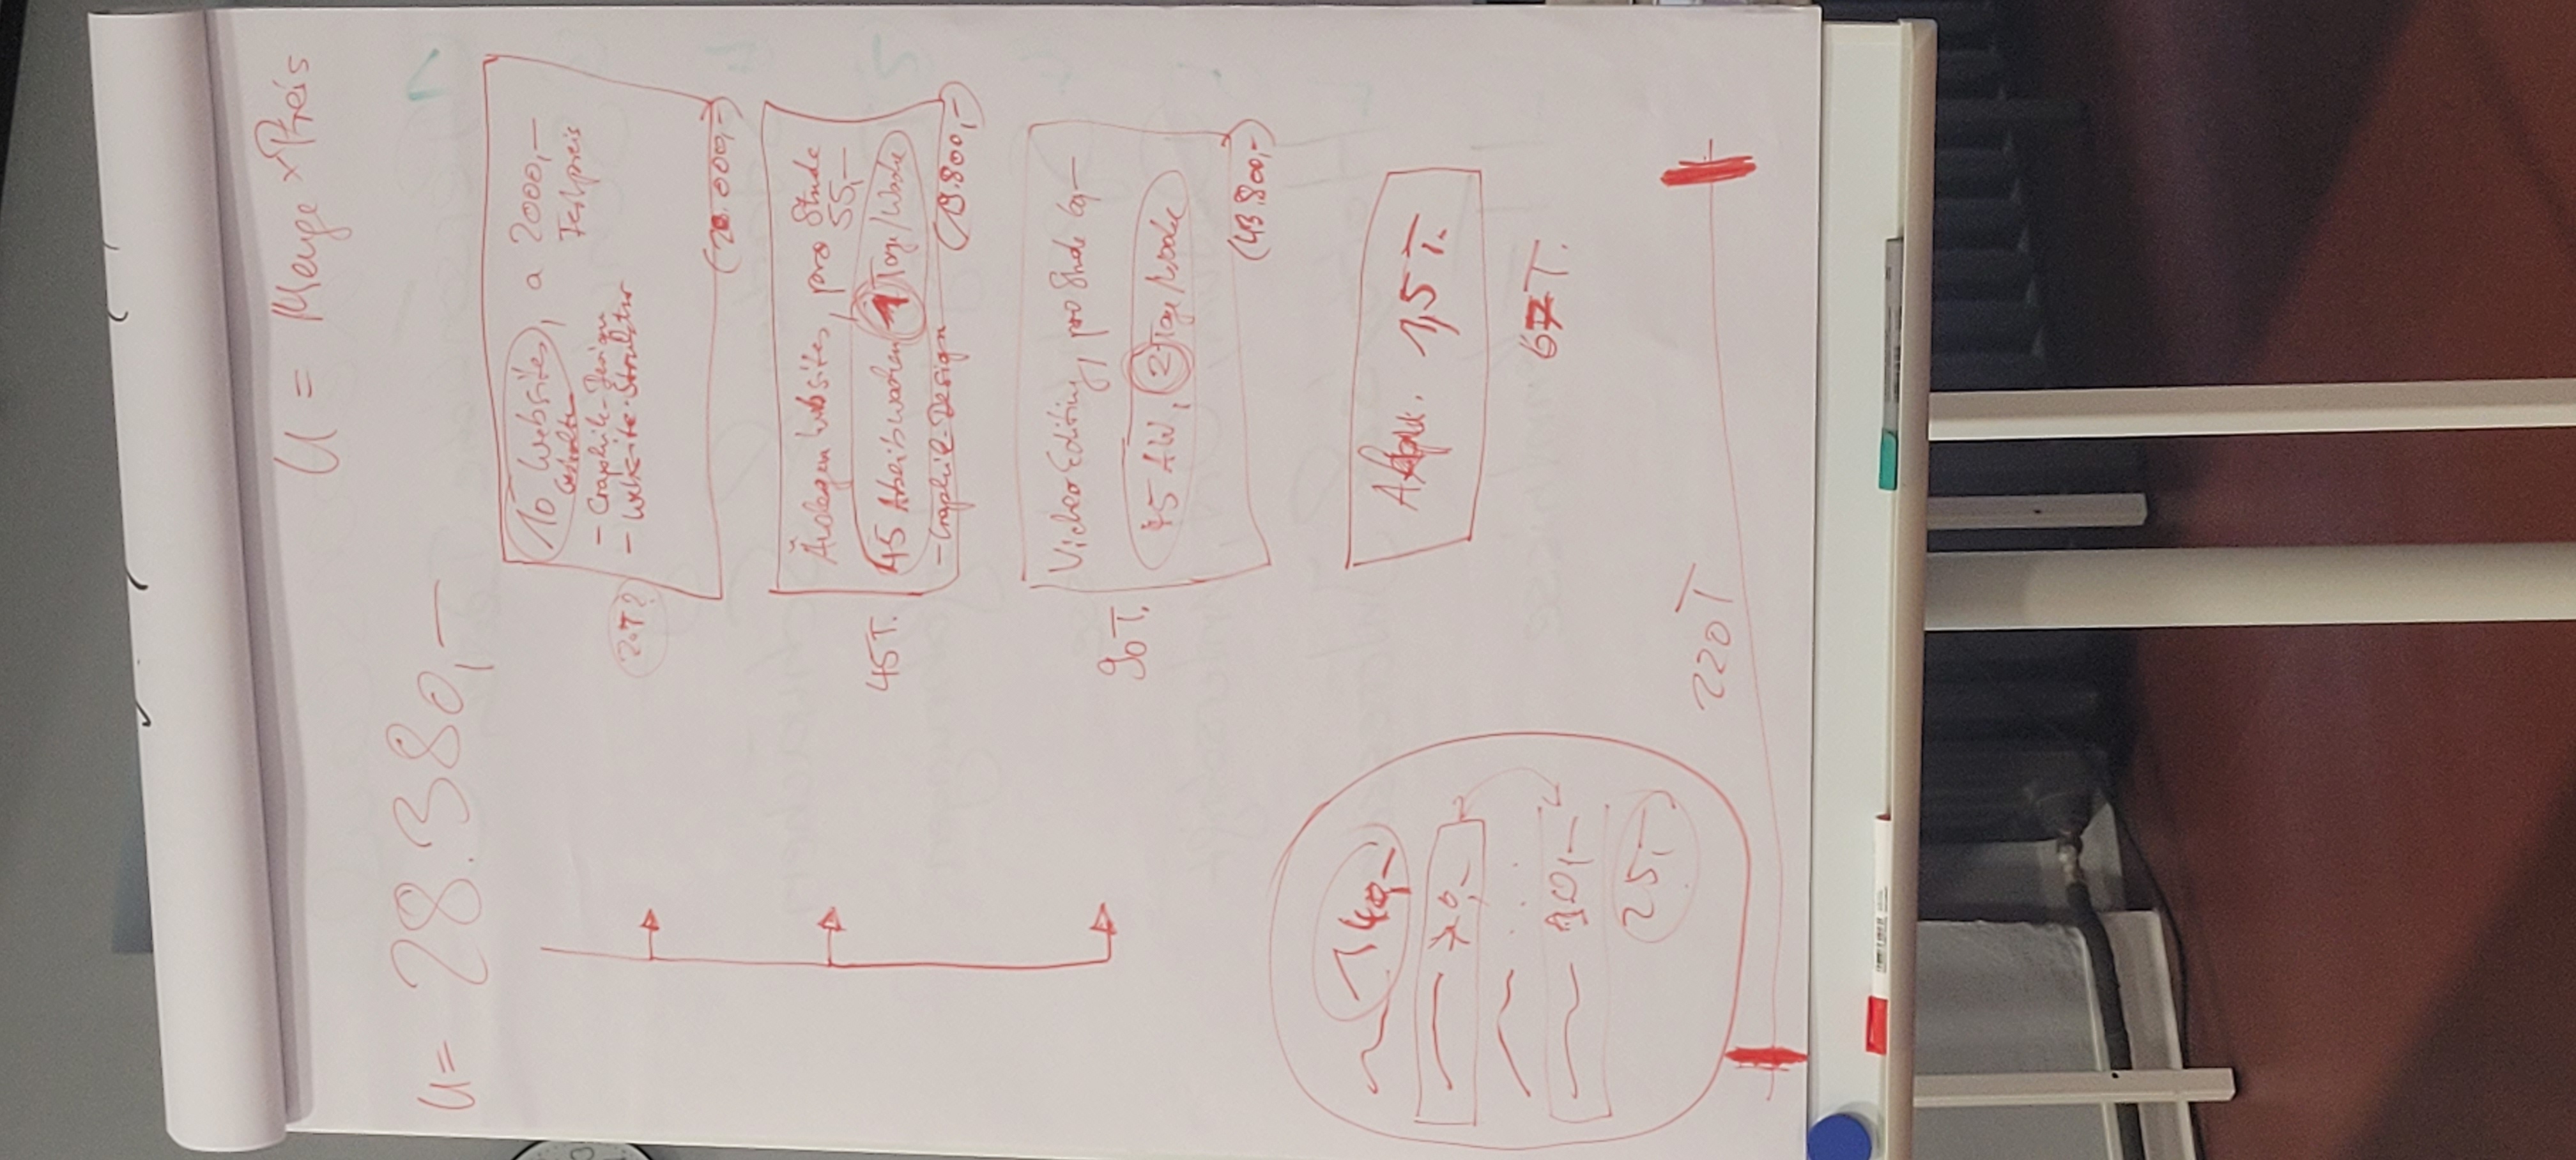 U = Menge x Preis
U = 28.380,-
10 Websites, a 2000,-
Festpreis
- Graphik-Design
- Website-Struktur
20T?
(20.000,-)
Änderungen Websites, pro Stunde
55,-
45 Arbeitswochen 1 Tage/Woche
- Graphik-Design
45T.
(19.800,-)
Video Editing, pro Stunde 60,-
45 AW, 2 Tage/Woche
90T.
(43.800,-)
1,5T.
67T.
140,-
70,-
90,-
25,-
220T